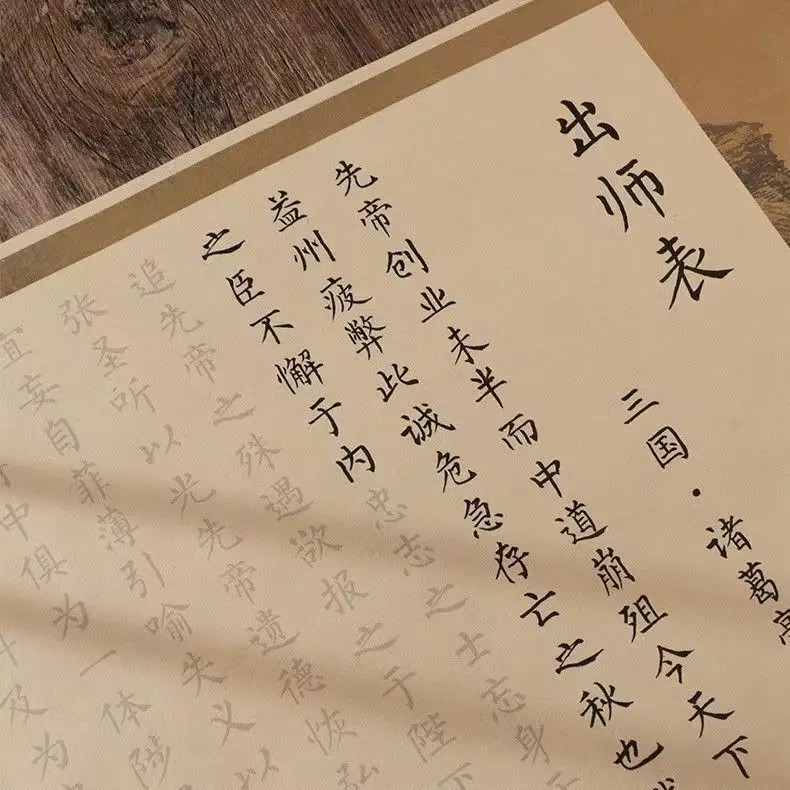 出师表
三国·诸葛亮
先帝创业未半而中道崩殂今天下
益州疲弊此诚危急存亡之秋也
之臣不懈于内忠志之士忘身
追先帝之殊遇欲报之于陛下
张圣听以光先帝遗德恢弘
宜妄自菲薄引喻失义以
中俱为一体陟
及为